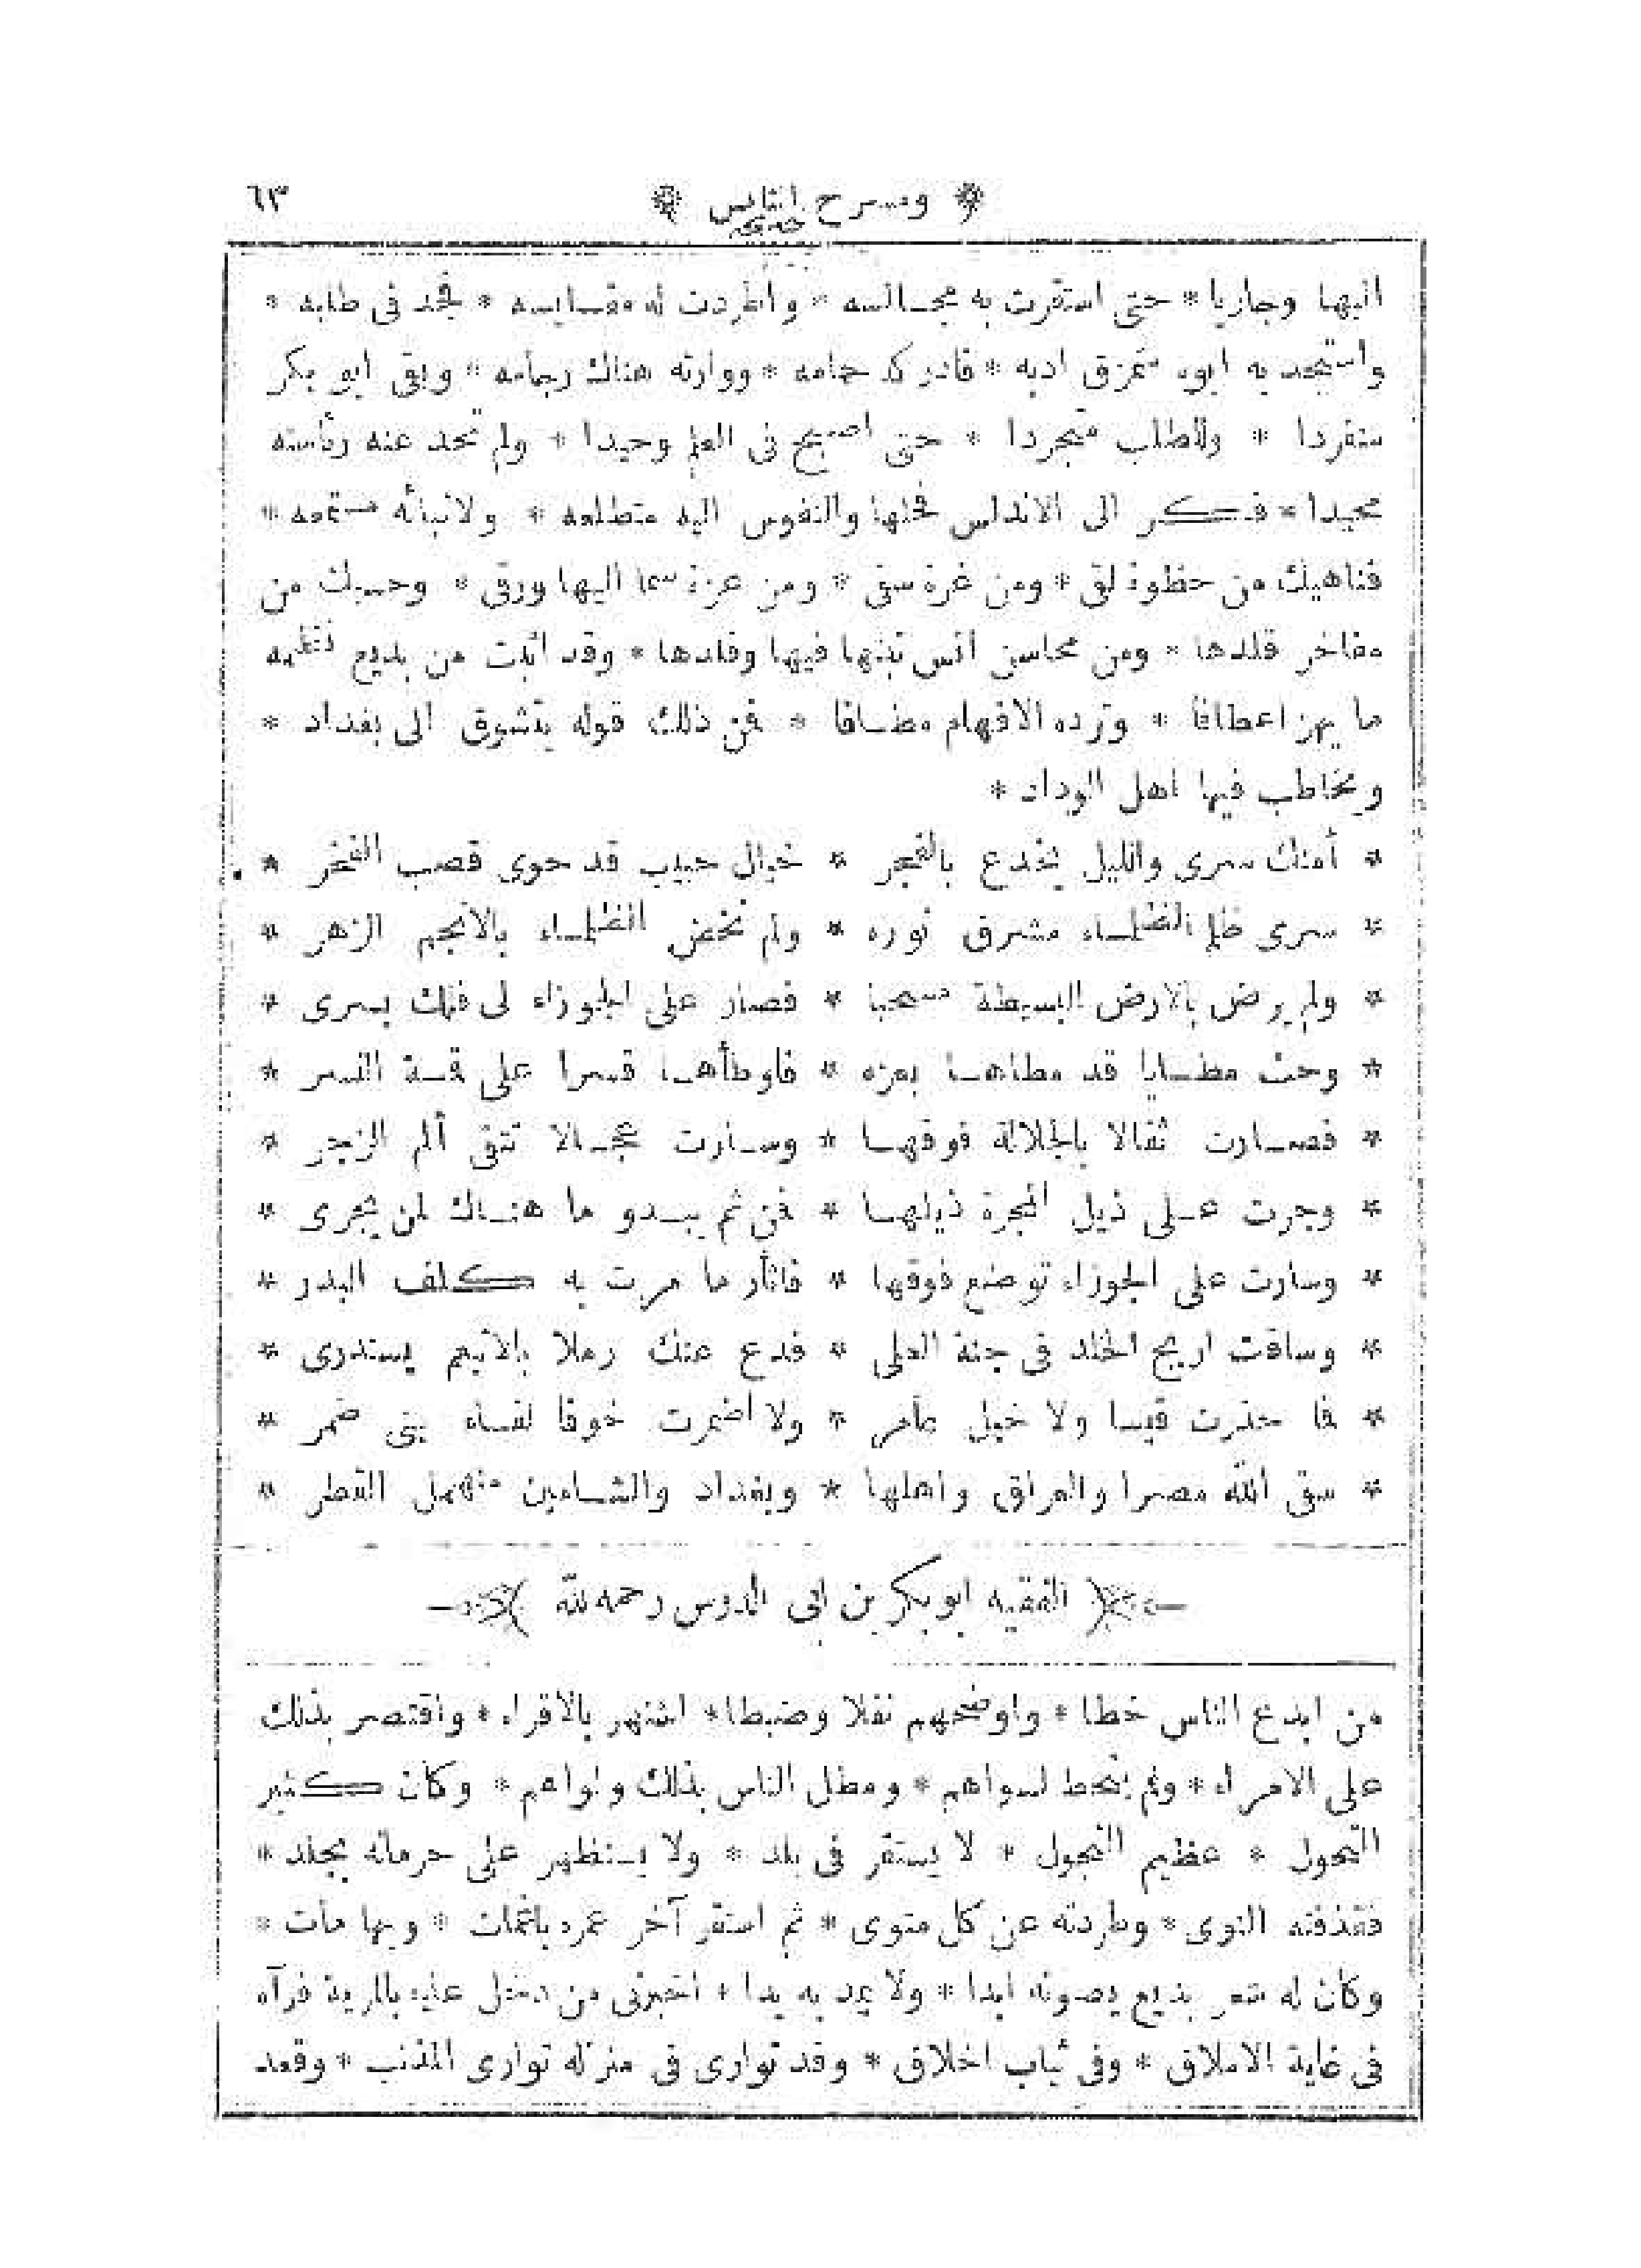 ﴿ ومسرح التأنس ﴾ ٦٣
اليها وجاريا * حتى استقرت به مجالسه * واطردت له مقايسه * فجد فى طلبه *
واستجد به ابوه متمزق ادبه * فادركه حمامه * ووارته هناك رجامه * وبقى ابو بكر
متفردا * وللطلب متجردا * حتى اصبح فى العلم وحيدا * ولم تجد عنه رئاسته
محيدا * فكر الى الاندلس فحلها والنفوس اليه متطلعه * ولانبائه متسمعه *
فناهيك من حظوة لقى * ومن عزة سقى * ومن عزة سما اليها ورقى * وحسبك من
مفاخر قلدها * ومن محاسن انس ثبتها فيها وخلدها * وقد اثبت من بديع نظمه
ما يهز اعطافا * وترده الافهام نطافا * فمن ذلك قوله يتشوق الى بغداد *
ويخاطب فيها اهل الوداد *
* أمنك سرى والليل يخدع بالفجر * خيال حبيب قد حوى قصب الفخر *
* سرى ظلم الظلماء مشرق نوره * ولم يخض الظلماء بالانجم الزهر *
* ولم يرض بالارض البسيطة مسحبا * فصار على الجوزاء الى فلك يسرى *
* وحث مطايا قد مطاها بعزه * فاوطأها قسرا على قمة النسر *
* فصارت ثقالا بالجلالة فوقها * وسارت عجالا تتقى ألم الزجر *
* وجرت على ذيل المجرة ذيلها * فمن ثم يبدو ما هناك لمن يجرى *
* وسارت على الجوزاء توضع فوقها * فاثار ما مرت به كلف البدر *
* وساقت اريج الخلد فى جنة العلى * فدع عنك رملا بالانيعم يستذرى *
* فما حذرت قيسا ولا خيل عامر * ولا اضمرت خوفا لقاء بنى ضمر *
* سقى الله مصرا والعراق واهلها * وبغداد والشامين منهمل القطر *
﴿ الفقيه ابو بكر بن ابى الدوس رحمه الله ﴾
من ابدع الناس خطا * واوضحهم نقلا وضبطا * اشتهر بالاقراء * واقتصر بذلك
على الامراء * ولم ينحط لسواهم * ومطل الناس بذلك ولواهم * وكان كثير
التحول * عظيم التجول * لا يستقر فى بلد * ولا يستظهر على حرمانه بجلد *
فقذفته النوى * وطردته عن كل مثوى * ثم استقر آخر عمره باغمات * وبها مات *
وكان له شعر بديع يصونه ابدا * ولا يمد به يدا * اخبرنى من دخل عليه بالمرية فرآه
فى غاية الاملاق * وفى ثياب اخلاق * وقد توارى فى منزله توارى المذنب * وقعد